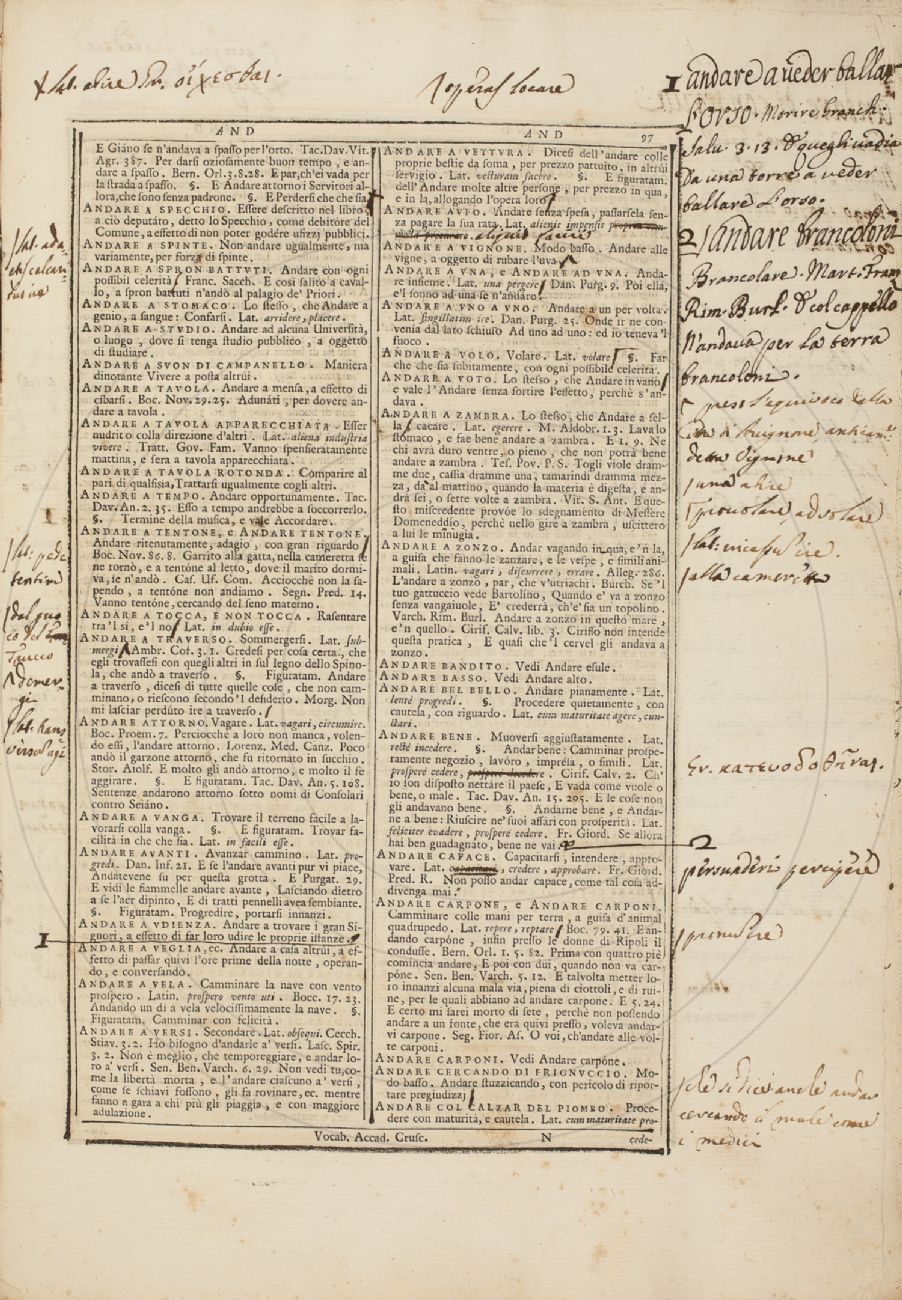 operas locare
1 andare a veder ballar
l'orso. Morire. Franch.
Salv. 3. 13. E quegli vadia
Da una torre a veder
ballare l'orso.
2 andare brancoloni
Brancolare. Matt. Fran.
Rim. Burl. E col cappello
N'andava per la terra
brancoloni.
AND
E Giáno se n'andava a spasso per l'orto. Tac. Dav. Vit.
Agr. 387. Per darsi oziosamente buon tempo, e an-
dare a spasso. Bern. Orl. 3. 8. 28. E par, ch'ei vada per
la strada a spasso. §. E Andare attorno i Servitori al-
lora, che sono senza padrone. §. E Perdersi che che sia
ANDARE A SPECCHIO. Essere descritto nel libro
a ciò deputáto, detto lo Specchio, come debitóre del
Comune, a effetto di non poter godére ufizzj pubblici.
ANDARE A SPINTE. Non andare ugualmente, ma
variamente, per forza di spinte.
ANDARE A SPRON BATTUTI. Andare con ogni
possibil celerità Franc. Sacch. E così salito a caval-
lo, a spron battuti n'andò al palagio de' Priori.
ANDARE A STOMACO. Lo stesso, che Andare a
genio, a sangue: Confarsi. Lat. arridere, placere.
ANDARE A STUDIO. Andare ad alcuna Università,
o luogo, dove si tenga studio pubblico, a oggetto
di studiare.
ANDARE A SUON DI CAMPANELLO. Maniera
dinotante Vivere a posta altrui.
ANDARE A TAVOLA. Andare a mensa, a effetto di
cibarsi. Boc. Nov. 29. 25. Adunáti, per dovere an-
dare a tavola.
ANDARE A TAVOLA APPARECCHIATA. Esser
nudrito colla direzione d'altri. Lat. aliena industria
vivere. Tratt. Gov. Fam. Vanno spensieratamente
mattina, e sera a tavola apparecchiata.
ANDARE A TAVOLA ROTONDA. Comparire al
pari di qualsisia, Trattarsi ugualmente cogli altri.
ANDARE A TEMPO. Andare opportunamente. Tac.
Dav. An. 2. 35. Esso a tempo andrebbe a soccorrerlo.
§. Termine della musica, e vale Accordare.
ANDARE A TENTONE, e ANDARE TENTONE
Andare ritenutamente, adagio, con gran riguardo
Boc. Nov. 86. 8. Garrito alla gatta, nella cameretta se
ne rornò, e a tentóne al letto, dove il marito dormi-
va, se n'andò. Caf. Uf. Com. Acciocchè non la sa-
pendo, a tentóne non andiamo. Segn. Pred. 14.
Vanno tentóne, cercando del seno materno.
ANDARE A TOCCA, E NON TOCCA. Rasentare
tra'l sì, e'l no Lat. in dubio esse.
ANDARE A TRAVERSO. Sommergersi. Lat. sub-
mergi Ambr. Cof. 3. 1. Credesi per cosa certa, che
egli trovassesi con quegli altri in sul legno dello Spino-
la, che andò a traverso. §. Figuratam. Andare
a traverso, dicesi di tutte quelle cose, che non cam-
minano, o riescono secondo'l desiderio. Morg. Non
mi lasciar perdúto ire a traverso.
ANDARE ATTORNO. Vagare. Lat. vagari, circumire.
Boc. Proem. 7. Perciocchè a loro non manca, volen-
do essi, l'andare attorno. Lorenz. Med. Canz. Poco
andò il garzone attorno, che fu ritornato in succhio.
Stor. Aiolf. E molto gli andò attorno, e molto il fe
aggirare. §. E figuratam. Tac. Dav. An. 5. 108.
Sentenze andarono attorno sotto nomi di Consolari
contro Seiáno.
ANDARE A VANGA. Trovare il terreno facile a la-
vorarsi colla vanga. §. E figuratam. Trovar fa-
cilità in che che sia. Lat. in facili esse.
ANDARE AVANTI. Avanzar cammino. Lat. pro-
gredi. Dan. Inf. 21. E se l'andare avanti pur vi piace,
Andatevene su per questa grotta. E Purgat. 29.
E vidi le fiammelle andare avante, Lasciando dietro
a se l'aer dipinto, E di tratti pennelli avea sembiante.
§. Figuratam. Progredire, portarsi innanzi.
ANDARE A UDIENZA. Andare a trovare i gran Si-
gnori, a effetto di far loro udire le proprie istanze.
ANDARE A VEGLIA, ec. Andare a casa altrui, a ef-
fetto di passar quivi l'ore prime della notte, operan-
do, e conversando.
ANDARE A VELA. Camminare la nave con vento
prospero. Latin. prospero vento uti. Bocc. 17. 23.
Andando un dì a vela velocissimamente la nave. §.
Figuratam. Camminar con felicità.
ANDARE A VERSI. Secondare. Lat. obsequi. Cecch.
Stiav. 3. 2. Ho bisogno d'andarle a' versi. Lasc. Spir.
3. 2. Non è meglio, che temporeggiare, e andar lo-
ro a' versi. Sen. Ben. Varch. 6. 29. Non vedi tu, co-
me la libertà morta, e l'andare ciascuno a' versi,
come se schiavi fossono, gli fa rovinare, ec. mentre
fanno a gara a chi più gli piaggia, e con maggiore
adulazione.
AND 97
ANDARE A VETTURA. Dicesi dell'andare colle
proprie bestie da soma, per prezzo pattuito, in altrui
servigio. Lat. vecturam facere. §. E figuratam.
dell'Andare molte altre persone, per prezzo in qua,
e in la, allogando l'opera loro
ANDARE AUFO. Andare senza spesa, passarsela sen-
za pagare la sua rata. Lat. alienis impensis
ANDARE A VIGNONE. Modo basso. Andare alle
vigne, a oggetto di rubare l'uva
ANDARE A UNA, e ANDARE AD UNA. Anda-
re insieme. Lat. una pergere Dan. Purg. 9. Poi ella,
e'l sonno ad una se n'andaro.
ANDARE A UNO A UNO. Andare a un per volta.
Lat. singillatim ire. Dan. Purg. 25. Onde ir ne con-
venia dal lato schiuso Ad uno ad uno: ed io teneva'l
fuoco.
ANDARE A VOLO. Volare. Lat. volare §. Far
che che sia subitamente, con ogni possibile celerità.
ANDARE A VOTO. Lo stesso, che Andare in vano
e vale l'Andare senza sortire l'effetto, perchè s'an-
dava.
ANDARE A ZAMBRA. Lo stesso, che Andare a sel-
la cacare. Lat. egerere. M. Aldobr. 1. 3. Lava lo
stomaco, e fae bene andare a zambra. E 1. 9. Ne
chi avrà duro ventre, o pieno, che non potrà bene
andare a zambra. Tes. Pov. P. S. Togli viole dram-
me due, cassia dramme una, tamarindi dramma mez-
za, dà al mattino, quando la materia è digesta, e an-
drà sei, o sette volte a zambra. Vit. S. Ant. E que-
sto miscredente provóe lo sdegnamento di Messere
Domeneddio, perchè nello gire a zambra, uscittero
a lui le minugia.
ANDARE A ZONZO. Andar vagando in qua, e'n la,
a guisa che fanno le zanzare, e le vespe, e simili ani-
mali. Latin. vagari, discurrere, errare. Alleg. 286.
L'andare a zonzo, par, che v'utriachi. Burch. Se 'l
tuo gattuccio vede Bartolino, Quando e' va a zonzo
senza vangaiuole, E' crederrà, ch'e' sia un topolino.
Varch. Rim. Burl. Andare a zonzo in questo mare,
e'n quello. Cirif. Calv. lib. 3. Ciriffo non intende
questa pratica, E quasi che 'l cervel gli andava a
zonzo.
ANDARE BANDITO. Vedi Andare esule.
ANDARE BASSO. Vedi Andare alto.
ANDARE BEL BELLO. Andare pianamente. Lat.
lentè progredi. §. Procedere quietamente, con
cautela, con riguardo. Lat. cum maturitate agere, cun-
ctari.
ANDARE BENE. Muoversi aggiustatamente. Lat.
rectè incedere. §. Andar bene: Camminar prospe-
ramente negozio, lavóro, impresa, o simili. Lat.
prosperè cedere, Cirif. Calv. 2. Ch'
io son disposto nettare il paese, E vada come vuole o
bene, o male. Tac. Dav. An. 15. 205. E le cose non
gli andavano bene. §. Andarne bene, e Andar-
ne a bene: Riuscire ne' suoi affári con prosperità. Lat.
feliciter evadere, prosperè cedere. Fr. Giord. Se allora
hai ben guadagnato, bene ne vai.
ANDARE CAPACE. Capacitarsi, intendere, appro-
vare. Lat. credere, approbare. Fr. Giord.
Pred. R. Non posso andar capace, come tal cosa ad-
divenga mai.
ANDARE CARPONE, e ANDARE CARPONI.
Camminare colle mani per terra, a guisa d'animal
quadrupedo. Lat. repere, reptare Boc. 79. 41. E an-
dando carpóne, infin presso le donne di Ripoli il
condusse. Bern. Orl. 1. 5. 82. Prima con quattro piè
comincia andare, E poi con dui, quando non va car-
póne. Sen. Ben. Varch. 5. 12. E talvolta metter lo-
ro innanzi alcuna mala via, piena di ciottoli, e di rui-
ne, per le quali abbiano ad andare carpone. E 5. 24.
E certo mi sarei morto di sete, perchè non possendo
andare a un fonte, che era quivi presso, voleva andar-
vi carpone. Seg. Fior. As. O voi, ch'andate alle vol-
te carponi.
ANDARE CARPONI. Vedi Andare carpóne.
ANDARE CERCANDO DI FRIGNUCCIO. Mo-
do basso. Andare stuzzicando, con pericolo di ripor-
tare pregiudizzj
ANDARE COL CALZAR DEL PIOMBO. Proce-
dere con maturità, e cautela. Lat. cum maturitate pro-
Vocab. Accad. Crusc. N cede-
una abire
alla cameretta
2
persuaderi percipere
1
che si dice anche andar
cercando il male come
i medici